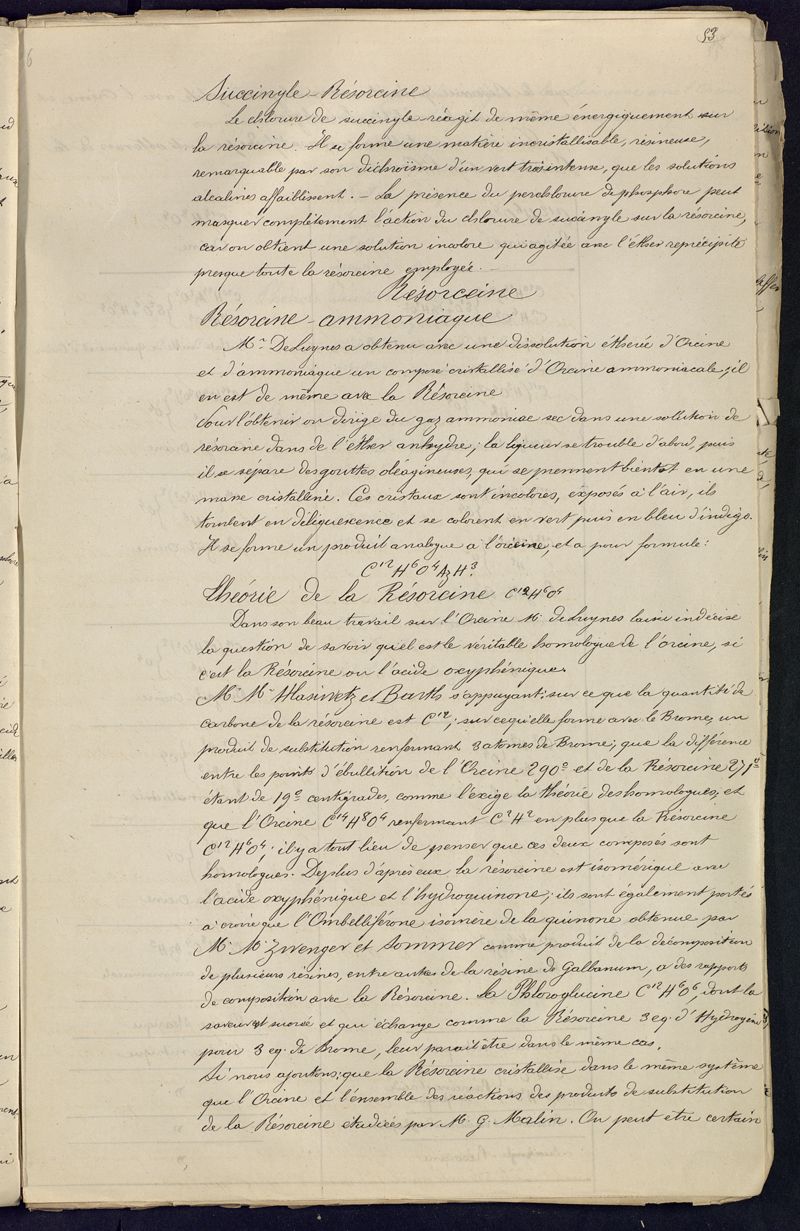 53
Succinyle-Résorcine
Le chlorure de succinyle réagit de même énergiquement sur
la résorcine. Il se forme une matière incristallisable, résineuse,
remarquable par son dichroïsme d'un vert très intense, que les solutions
alcalines affaiblissent. — La présence du perchlorure de phosphore peut
masquer complètement l'action du chlorure de succinyle sur la résorcine,
car on obtient une solution incolore qui agitée avec l'éther reprécipite
presque toute la résorcine employée. —
Résorceine
Résorcine-ammoniaque
Mr. De Luynes a obtenu avec une dissolution éthérée d'Orcine
et d'ammoniaque un composé cristallisé d'Orcine ammoniacale; il
en est de même avec la Résorcine
Pour l'obtenir on dirige du gaz ammoniac sec dans une solution de
résorcine dans de l'éther anhydre; la liqueur se trouble d'abord, puis
il se sépare des gouttes oléagineuses, qui se prennent bientot en une
masse cristalline. Ces cristaux sont incolores, exposés à l'air, ils
tombent en déliquescence et se colorent en vert puis en bleu d'indigo.
Il se forme un produit analogue à l'orceine, et a pour formule:
C12 H6 O4 Az H3.
Théorie de la Résorcine C12 H6 O4
Dans son beau travail sur l'Orcine M. de Luynes laisse indécise
la question de savoir quel est le véritable homologue de l'orcine, si
c'est la Résorcine ou l'acide oxyphénique.
Mr. Mr. Hlasiwetz et Barth s'appuyant: sur ce que la quantité de
carbone de la résorcine est C12; sur ce qu'elle forme avec le Brome, un
produit de substitution renfermant 3 atomes de Brome; que la différence
entre les points d'ébullition de l'Orcine 290° et de la Résorcine 271°
étant de 19° centigrades, comme l'exige la théorie des homologues, et
que l'Orcine C14 H8 O4 renfermant C2 H2 en plus que la Résorcine
C12 H6 O4. il y a tout lieu de penser que ces deux composés sont
homologues. De plus d'après eux la résorcine est isomérique avec
l'acide oxyphénique et l'hydroquinone; ils sont également portés
à croire que l'Ombelliférone isomère de la quinone obtenue par
Mr. Mr. Zwenger et Sommer comme produit de la décomposition
de plusieurs résines, entre autres de la résine de Galbanum, a des rapports
de composition avec la Résorcine. La Phloroglucine C12 H6 O6, dont la
saveur est sucrée et qui échange comme la Résorcine 3 eq. d'Hydrogène
pour 3 eq. de Brome, leur parait être dans le même cas.
Si nous ajoutons: que la Résorcine cristallise dans le même système
que l'Orcine et l'ensemble des réactions des produits de substitution
de la Résorcine étudiées par M. G. Malin. On peut etre certain